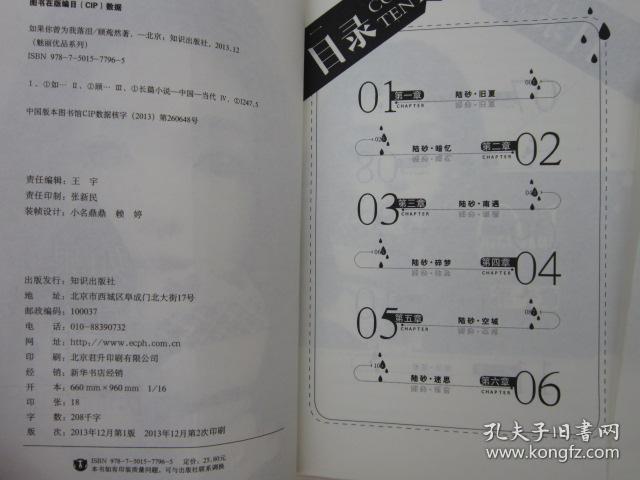 图书在版编目(CIP)数据
如果你曾为我落泪/顾菀然著.—北京:知识出版社,2013.12
(魅丽优品系列)
ISBN 978-7-5015-7796-5
Ⅰ.①如… Ⅱ.①顾… Ⅲ.①长篇小说—中国—当代 Ⅳ.①I247.5
中国版本图书馆CIP数据核字(2013)第260648号
责任编辑:王 宇
责任印制:张新民
装帧设计:小名鼎鼎 赖 婷
出版发行:知识出版社
地 址:北京市西城区阜成门北大街17号
邮政编码:100037
电 话:010-88390732
网 址:http://www.ecph.com.cn
印 刷:北京君升印刷有限公司
经 销:新华书店经销
开 本:660 mm×960 mm 1/16
印 张:18
字 数:208千字
版 次:2013年12月第1版 2013年12月第2次印刷
ISBN 978-7-5015-7796-5 定价:25.80元
本书如有印装质量问题,可与出版社联系调换
目录
CO
TEN
01 第一章 CHAPTER 陆砂·旧夏
陆砂·暗忆 第二章 CHAPTER 02
03 第三章 CHAPTER 陆砂·南遇
陆砂·碎梦 第四章 CHAPTER 04
05 第五章 CHAPTER 陆砂·空城
陆砂·迷思 第六章 CHAPTER 06
孔夫子旧书网
kongfz.com